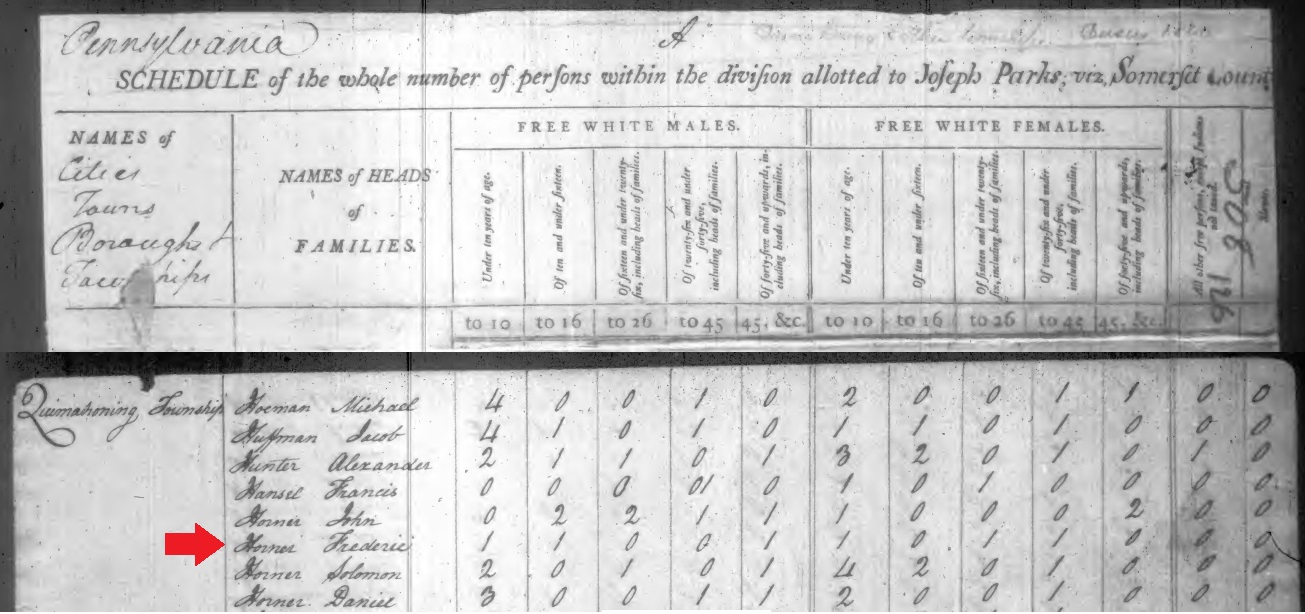 Pennsylvania
A
SCHEDULE of the whole number of perſons within the diviſion allotted to Joſeph Parks, viz, Somerſet County
NAMES of
Cities
Towns
Boroughs &
Townships
NAMES of HEADS
of
FAMILIES.
FREE WHITE MALES.
Under ten years of age.
Of ten and under ſixteen.
Of ſixteen and under twenty-
ſix, including heads of families.
Of twenty-ſix and under
forty-five,
including heads of families.
Of forty-five and upwards, in-
cluding heads of families.
FREE WHITE FEMALES.
Under ten years of age.
Of ten and under ſixteen.
Of ſixteen and under twenty-
ſix, including heads of families.
Of twenty-ſix and under
forty-five,
including heads of families.
Of forty-five and upwards,
including heads of families.
All other free perſons, except Indians
not taxed.
Slaves.
to 10 to 16 to 26 to 45 45, &c. to 10 to 16 to 26 to 45 45, &c.
Quimahoning Township Hoeman Michael 4 0 0 1 0 2 0 0 1 1 0 0
Huffman Jacob 4 1 0 1 0 1 1 0 1 0 0 0
Hunter Alexander 2 1 1 0 1 3 2 0 1 0 1 0
Hansel Francis 0 0 0 01 0 1 0 1 0 0 0 0
Horner John 0 2 2 1 1 1 0 0 0 2 0 0
Horner Frederic 1 1 0 0 1 1 0 1 1 0 0 0
Horner Solomon 2 0 1 0 1 4 2 0 1 0 0 0
Horner Daniel 3 0 0 1 1 2 0 0 1 0 0 0